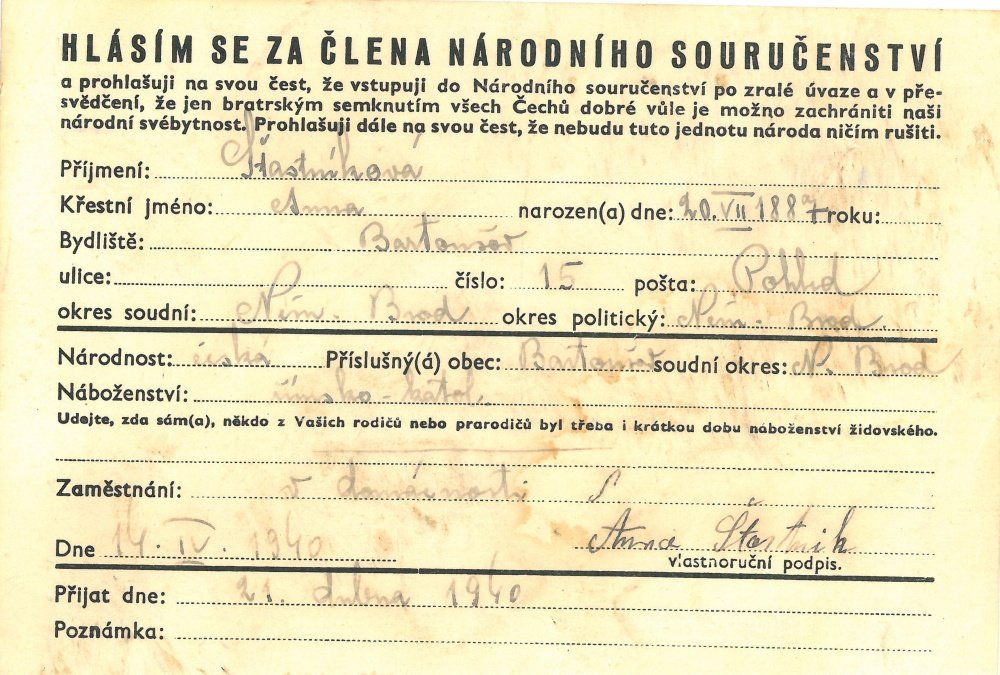 HLÁSÍM SE ZA ČLENA NÁRODNÍHO SOURUČENSTVÍ
a prohlašuji na svou čest, že vstupuji do Národního souručenství po zralé úvaze a v pře-
svědčení, že jen bratrským semknutím všech Čechů dobré vůle je možno zachrániti naši
národní svébytnost. Prohlašuji dále na svou čest, že nebudu tuto jednotu národa ničím rušiti.
Příjmení: Šťastníková
Křestní jméno: Anna narozen(a) dne: 20. VII roku:
Bydliště: Bartoušov
ulice: číslo: 15 pošta: Pohled
okres soudní: Něm. Brod okres politický: Něm. Brod.
Národnost: česká Příslušný(á) obec: Bartoušov soudní okres: N. Brod
Náboženství: římsko-katol.
Udejte, zda sám(a), někdo z Vašich rodičů nebo prarodičů byl třeba i krátkou dobu náboženství židovského.
Zaměstnání: v domácnosti
Dne 14. IV. 1940 Anna Šťastník
vlastnoruční podpis.
Přijat dne: 21. dubna 1940
Poznámka: